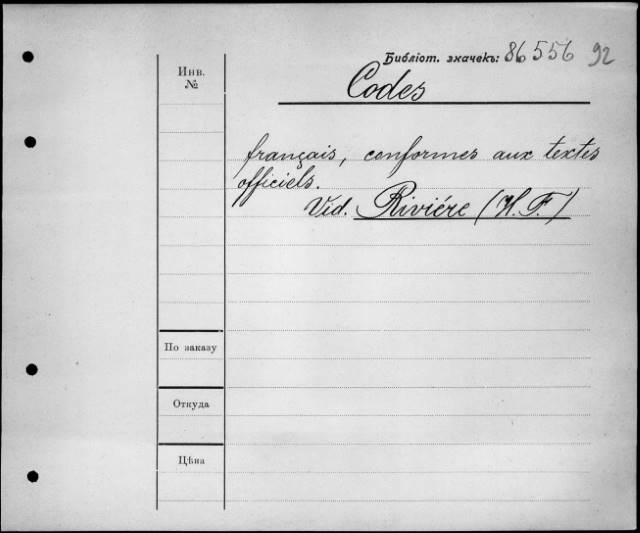 Библіот. значекъ: 86556 92
Инв.
№
Codes
français, conformes aux textes
officiels.
Vid. Riviére (H. F.)
По заказу
Откуда
Цѣна